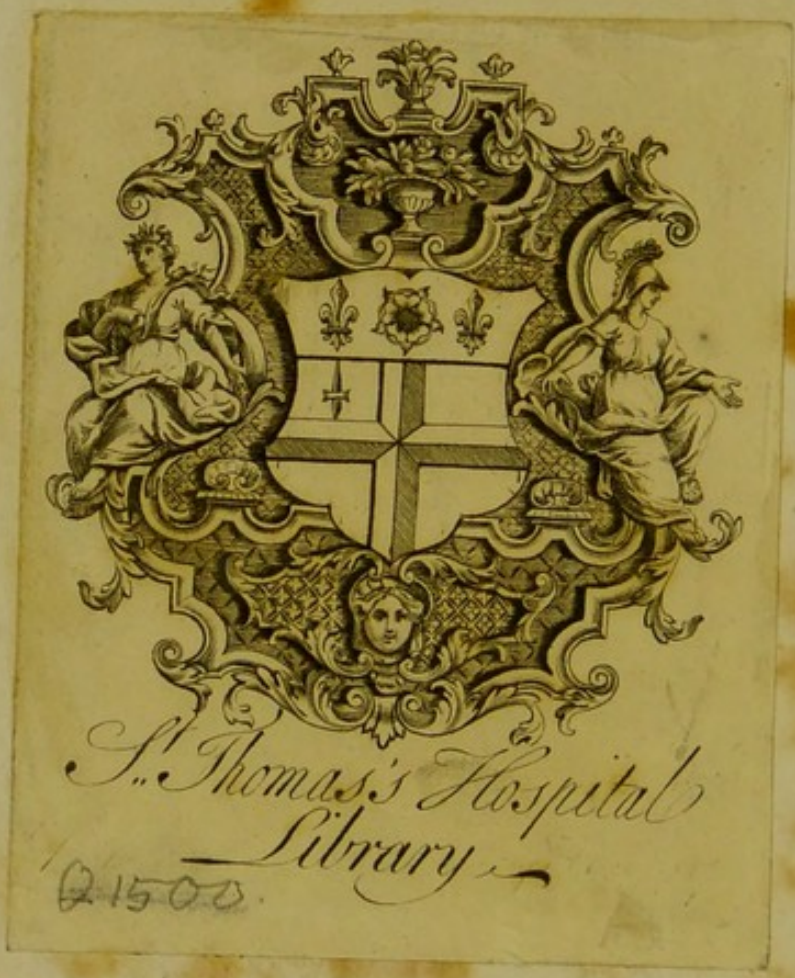 St. Thomas's Hospital
Library
Q1500.